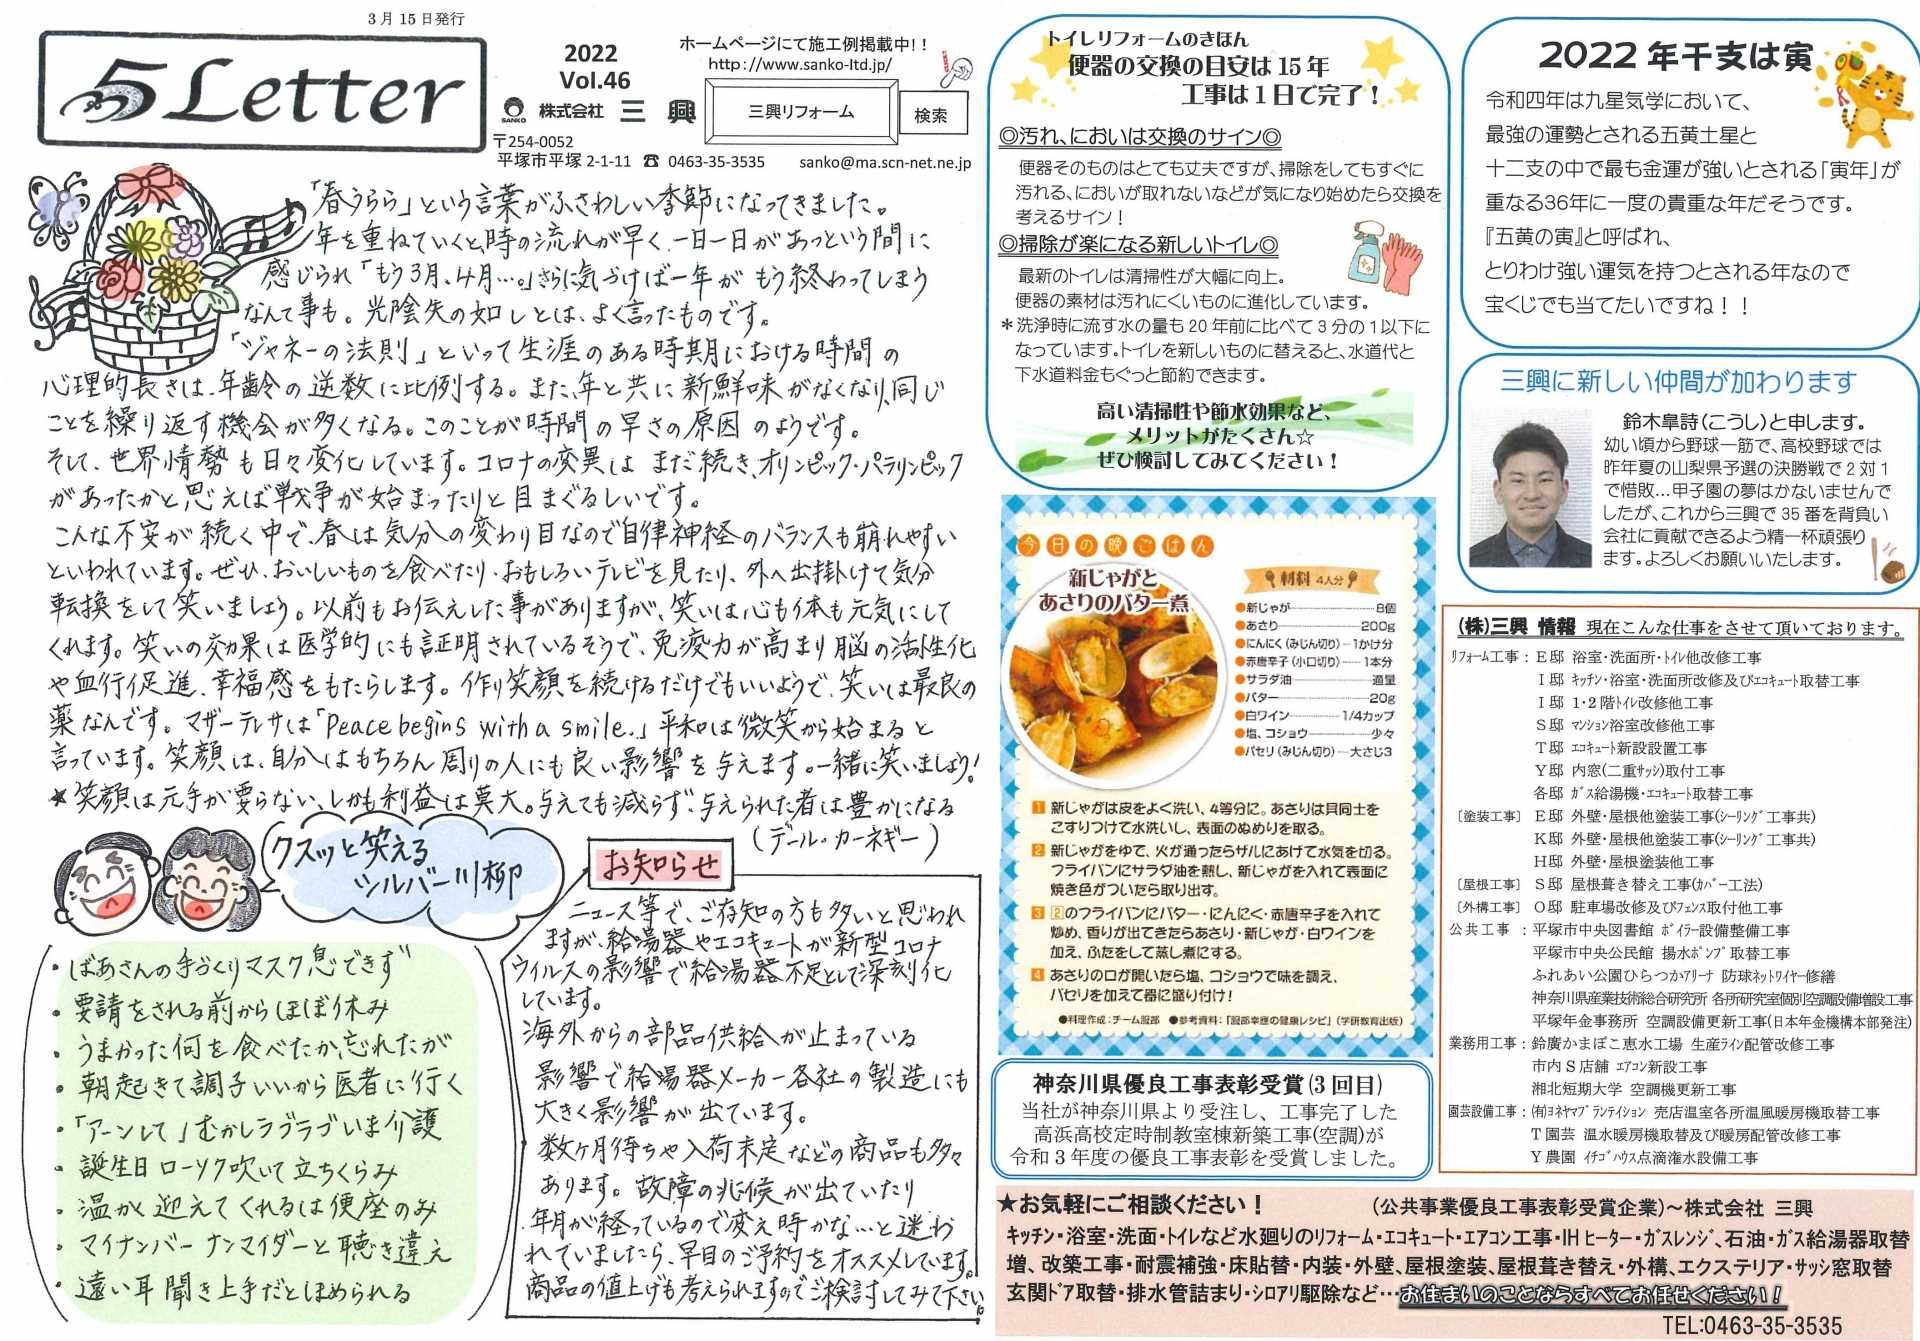 3月15日発行
5 Letter
2022
Vol.46
ホームページにて施工例掲載中!!
http://www.sanko-ltd.jp/
SANKO 株式会社 三興
三興リフォーム 検索
〒254-0052
平塚市平塚 2-1-11 ☎ 0463-35-3535 sanko@ma.scn-net.ne.jp
「春うらら」という言葉がふさわしい季節になってきました。
年を重ねていくと、時の流れが早く、一日一日があっという間に
感じられ「もう3月、4月…。」さらに気づけば一年がもう終わってしまう
なんて事も。光陰矢の如しとは、よく言ったものです。
「ジャネーの法則」といって生涯のある時期における時間の
心理的長さは、年齢の逆数に比例する。また、年と共に新鮮味がなくなり、同じ
ことを繰り返す機会が多くなる。このことが時間の早さの原因のようです。
そして、世界情勢も日々変化しています。コロナの変異はまだ続き、オリンピック・パラリンピック
があったかと思えば戦争が始まったりと目まぐるしいです。
こんな不安が続く中で、春は気分の変わり目なので自律神経のバランスも崩れやすい
といわれています。ぜひ、おいしいものを食べたり・おもしろいテレビを見たり、外へ出掛けて気分
転換をして笑いましょう。以前もお伝えした事がありますが、笑いは心も体も元気にして
くれます。笑いの効果は医学的にも証明されているそうで、免疫力が高まり脳の活性化
や血行促進、幸福感をもたらします。作り笑顔を続けるだけでもいいようで、笑いは最良の
薬なんです。マザーテレサは「Peace begins with a smile..」平和は微笑から始まると
言っています。笑顔は、自分はもちろん周りの人にも良い影響を与えます。一緒に笑いましょう!
★笑顔は元手が要らない、しかも利益は莫大。与えても減らず、与えられた者は豊かになる
(デール・カーネギー)
クスッと笑える
シルバー川柳
・ばあさんの手づくりマスク息できず
・要請をされる前からほぼ休み
・うまかった何を食べたか忘れたが
・朝起きて調子いいから医者に行く
・「アーンして」むかしラブラブいま介護
・誕生日ローソク吹いて立ちくらみ
・温かく迎えてくれるは便座のみ
・マイナンバーナンマイダーと聴き違え
・遠い耳聞き上手だとほめられる
お知らせ
ニュース等で、ご存知の方も多いと思われ
ますが、給湯器やエコキュートが新型コロナ
ウィルスの影響で給湯器不足として深刻化
しています。
海外からの部品供給が止まっている
影響で給湯器メーカー各社の製造にも
大きく影響が出ています。
数ヶ月待ちや入荷未定などの商品も多々
あります。故障の兆候が出ていたり
年月が経っているので変え時かな…と迷わ
れていましたら、早目のご予約をオススメしています。
商品の値上げも考えられますのでご検討してみて下さい。
トイレリフォームのきほん
便器の交換の目安は15年
工事は1日で完了!
◎汚れ、においは交換のサイン◎
便器そのものはとても丈夫ですが、掃除をしてもすぐに
汚れる、においが取れないなどが気になり始めたら交換を
考えるサイン!
◎掃除が楽になる新しいトイレ◎
最新のトイレは清掃性が大幅に向上。
便器の素材は汚れにくいものに進化しています。
*洗浄時に流す水の量も20年前に比べて3分の1以下に
なっています。トイレを新しいものに替えると、水道代と
下水道料金もぐっと節約できます。
高い清掃性や節水効果など、
メリットがたくさん☆
ぜひ検討してみてください!
今日の晩ごはん
新じゃがと
あさりのバター煮
材料 4人分
●新じゃが 8個
●あさり 200g
●にんにく(みじん切り) 1かけ分
●赤唐辛子(小口切り) 1本分
●サラダ油 適量
●バター 20g
●白ワイン 1/4カップ
●塩、コショウ 少々
●パセリ(みじん切り) 大さじ3
1 新じゃがは皮をよく洗い、4等分に。あさりは貝同士を
こすりつけて水洗いし、表面のぬめりを取る。
2 新じゃがをゆで、火が通ったらザルにあげて水気を切る。
フライパンにサラダ油を熱し、新じゃがを入れて表面に
焼き色がついたら取り出す。
3 2のフライパンにバター・にんにく・赤唐辛子を入れて
炒め、香りが出てきたらあさり・新じゃが・白ワインを
加え、ふたをして蒸し煮にする。
4 あさりの口が開いたら塩、コショウで味を調え、
パセリを加えて器に盛り付け!
●料理作成:チーム服部 ●参考資料:「服部幸應の健康レシピ」(学研教育出版)
神奈川県優良工事表彰受賞(3回目)
当社が神奈川県より受注し、工事完了した
高浜高校定時制教室棟新築工事(空調)が
令和3年度の優良工事表彰を受賞しました。
2022年干支は寅
令和四年は九星気学において、
最強の運勢とされる五黄土星と
十二支の中で最も金運が強いとされる「寅年」が
重なる36年に一度の貴重な年だそうです。
『五黄の寅』と呼ばれ、
とりわけ強い運気を持つとされる年なので
宝くじでも当てたいですね!!
三興に新しい仲間が加わります
鈴木皐詩(こうし)と申します。
幼い頃から野球一筋で、高校野球では
昨年夏の山梨県予選の決勝戦で2対1
で惜敗…甲子園の夢はかないませんで
したが、これから三興で35番を背負い
会社に貢献できるよう精一杯頑張り
ます。よろしくお願いいたします。
(株)三興 情報 現在こんな仕事をさせて頂いております。
ﾘﾌｫｰﾑ工事:E邸 浴室・洗面所・ﾄｲﾚ他改修工事
I邸 ｷｯﾁﾝ・浴室・洗面所改修及びｴｺｷｭｰﾄ取替工事
I邸 1・2階ﾄｲﾚ改修他工事
S邸 ﾏﾝｼｮﾝ浴室改修他工事
T邸 ｴｺｷｭｰﾄ新設設置工事
Y邸 内窓(二重ｻｯｼ)取付工事
各邸 ｶﾞｽ給湯機・ｴｺｷｭｰﾄ取替工事
[塗装工事] E邸 外壁・屋根他塗装工事(ｼｰﾘﾝｸﾞ工事共)
K邸 外壁・屋根他塗装工事(ｼｰﾘﾝｸﾞ工事共)
H邸 外壁・屋根塗装他工事
[屋根工事] S邸 屋根葺き替え工事(ｶﾊﾞｰ工法)
[外構工事] O邸 駐車場改修及びﾌｪﾝｽ取付他工事
公共工事:平塚市中央図書館 ﾎﾞｲﾗｰ設備整備工事
平塚市中央公民館 揚水ﾎﾟﾝﾌﾟ取替工事
ふれあい公園ひらつかｱﾘｰﾅ 防球ﾈｯﾄﾜｲﾔｰ修繕
神奈川県産業技術総合研究所 各所研究室個別空調設備増設工事
平塚年金事務所 空調設備更新工事(日本年金機構本部発注)
業務用工事:鈴廣かまぼこ恵水工場 生産ﾗｲﾝ配管改修工事
市内S店舗 ｴｱｺﾝ新設工事
湘北短期大学 空調機更新工事
園芸設備工事:(有)ﾖﾈﾔﾏﾌﾟﾗﾝﾃｲｼｮﾝ 売店温室各所温風暖房機取替工事
T園芸 温水暖房機取替及び暖房配管改修工事
Y農園 ｲﾁｺﾞﾊｳｽ点滴潅水設備工事
★お気軽にご相談ください! (公共事業優良工事表彰受賞企業)~株式会社 三興
キッチン・浴室・洗面・トイレなど水廻りのリフォーム・エコキュート・エアコン工事・IHヒーター・ガスレンジ、石油・ガス給湯器取替
増、改築工事・耐震補強・床貼替・内装・外壁、屋根塗装、屋根葺き替え・外構、エクステリア・サッシ窓取替
玄関ドア取替・排水管詰まり・シロアリ駆除など…お住まいのことならすべてお任せください!
TEL:0463-35-3535